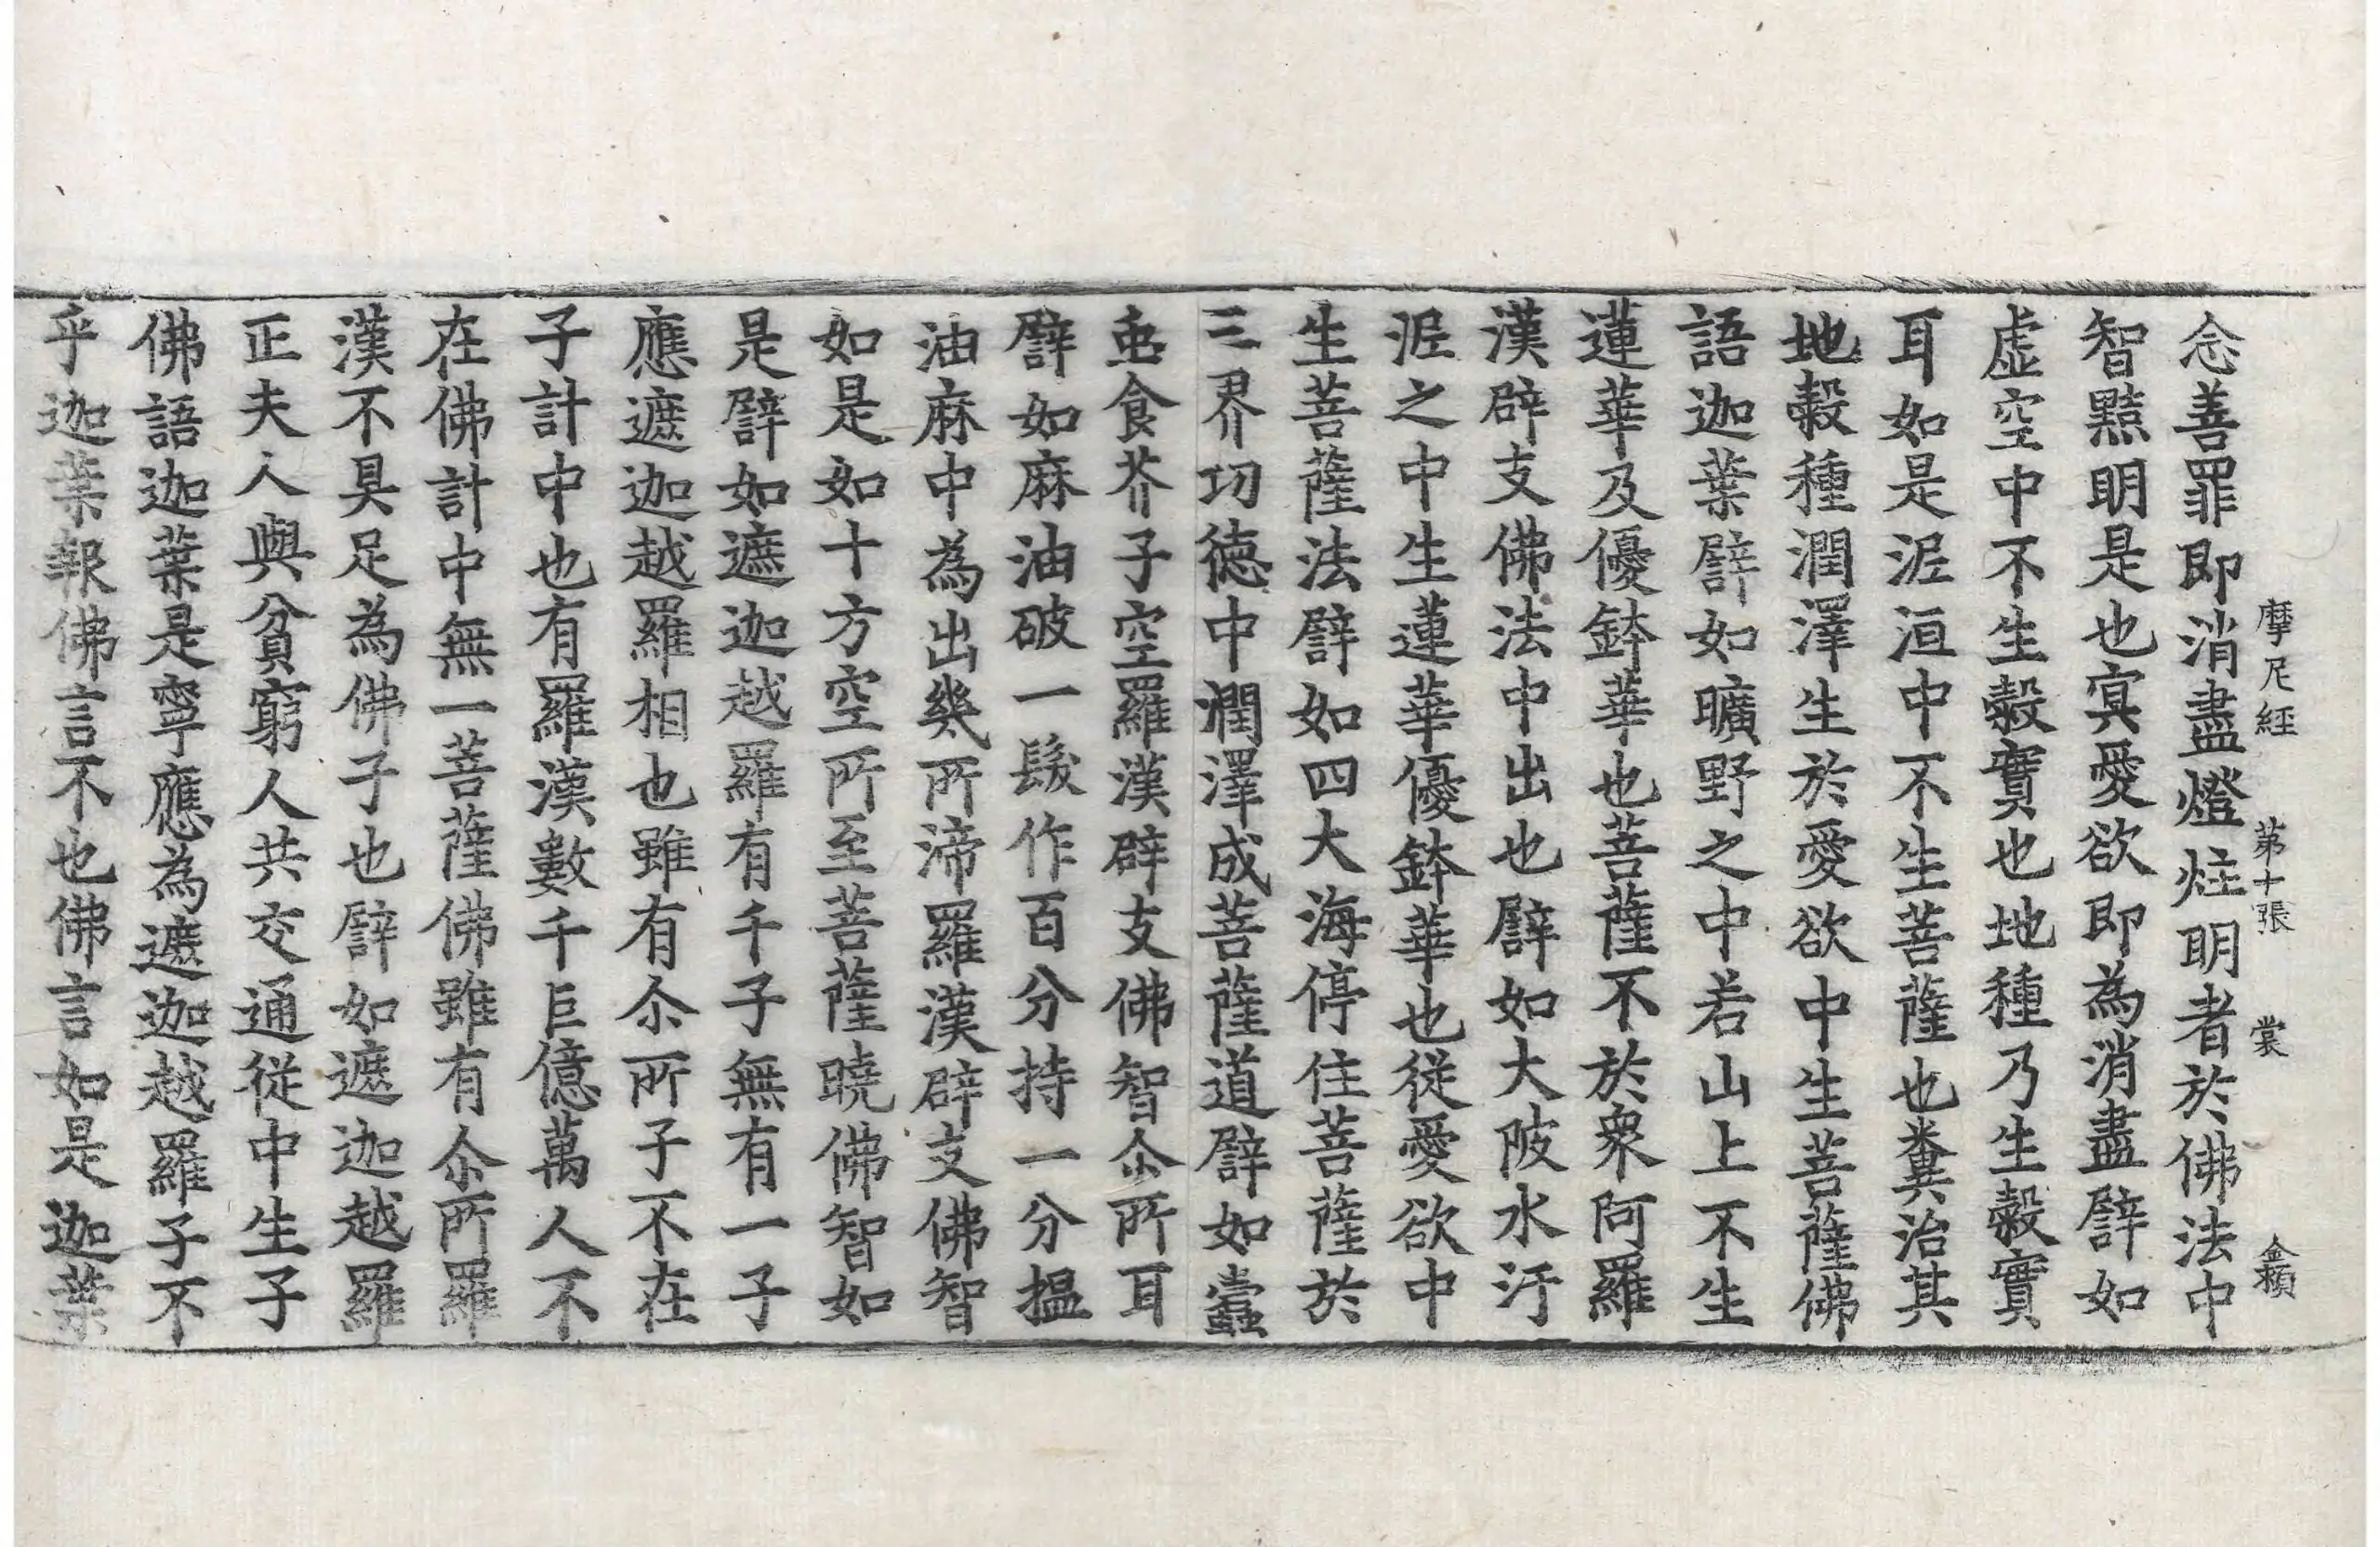 摩尼經 第十張 裳 金賴
念善罪即消盡燈炷明者於佛法中
智黠明是也㝠愛欲即為消盡譬如
虛空中不生糓實也地種乃生糓實
耳如是泥洹中不生菩薩也糞治其
地糓種潤澤生於愛欲中生菩薩佛
語迦葉譬如曠野之中若山上不生
蓮華及優鉢華也菩薩不於衆阿羅
漢辟支佛法中出也譬如大陂水汙
泥之中生蓮華優鉢華也從愛欲中
生菩薩法譬如四大海停住菩薩於
三界功德中潤澤成菩薩道譬如蠧
䖝食芥子空羅漢辟支佛智尒所耳
譬如麻油破一髮作百分持一分揾
油麻中為出幾所渧羅漢辟支佛智
如是如十方空所至菩薩曉佛智如
是譬如遮迦越羅有千子無有一子
應遮迦越羅相也雖有尒所子不在
子計中也有羅漢數千巨億萬人不
在佛計中無一菩薩佛雖有尒所羅
漢不具足為佛子也譬如遮迦越羅
正夫人與貧窮人共交通從中生子
佛語迦葉是寧應為遮迦越羅子不
乎迦葉報佛言不也佛言如是迦葉